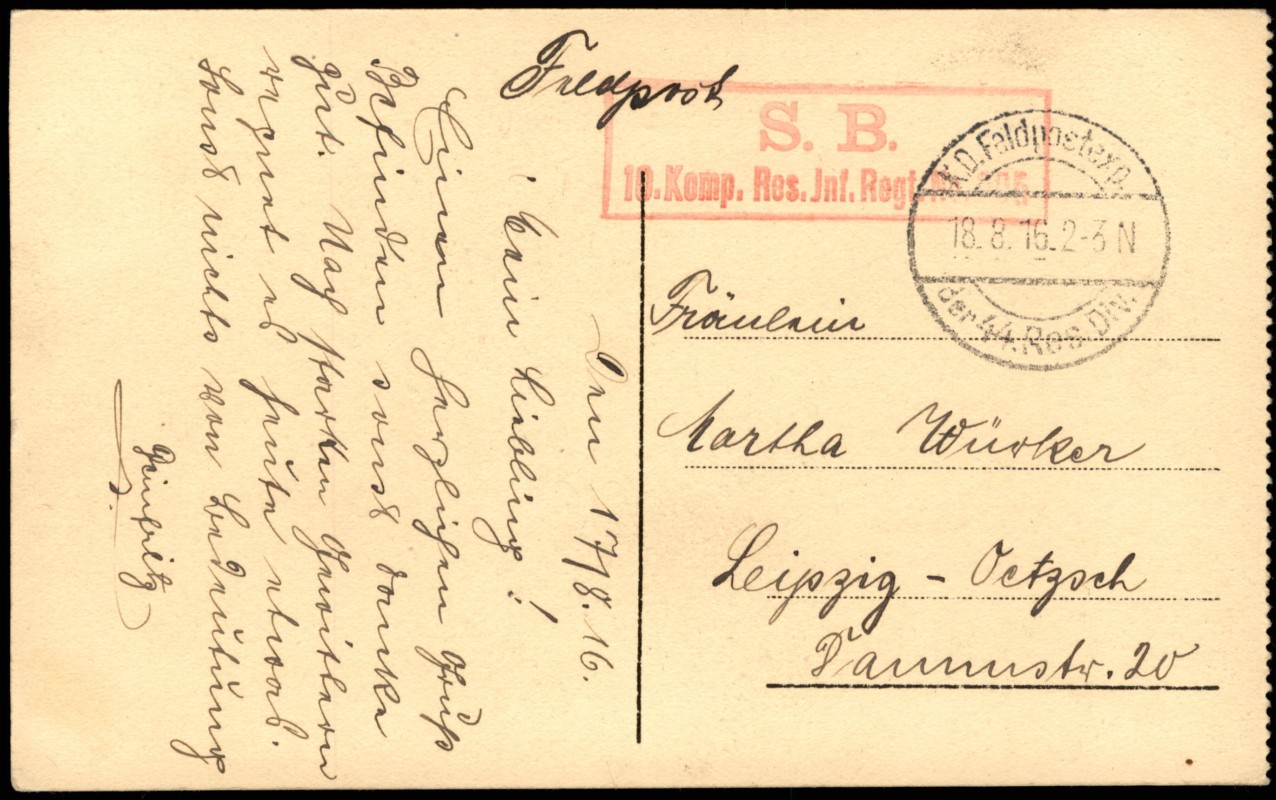 Feldpost
S. B.
10. Komp. Res. Inf. Regt. Nr. 205
K.D. Feldpostexp.
18. 8. 16. 2-3 N
der 44. Res. Div.
Fräulein
Martha Würker
Leipzig - Oetzsch
Taunustr. 20
Den 17/8.16.
Mein Liebling!
Einen herzlichen Gruß
Befinden sonst danke
gut. Nach starken Gewittern
regnet es heute etwas.
Sonst nichts von Bedeutung